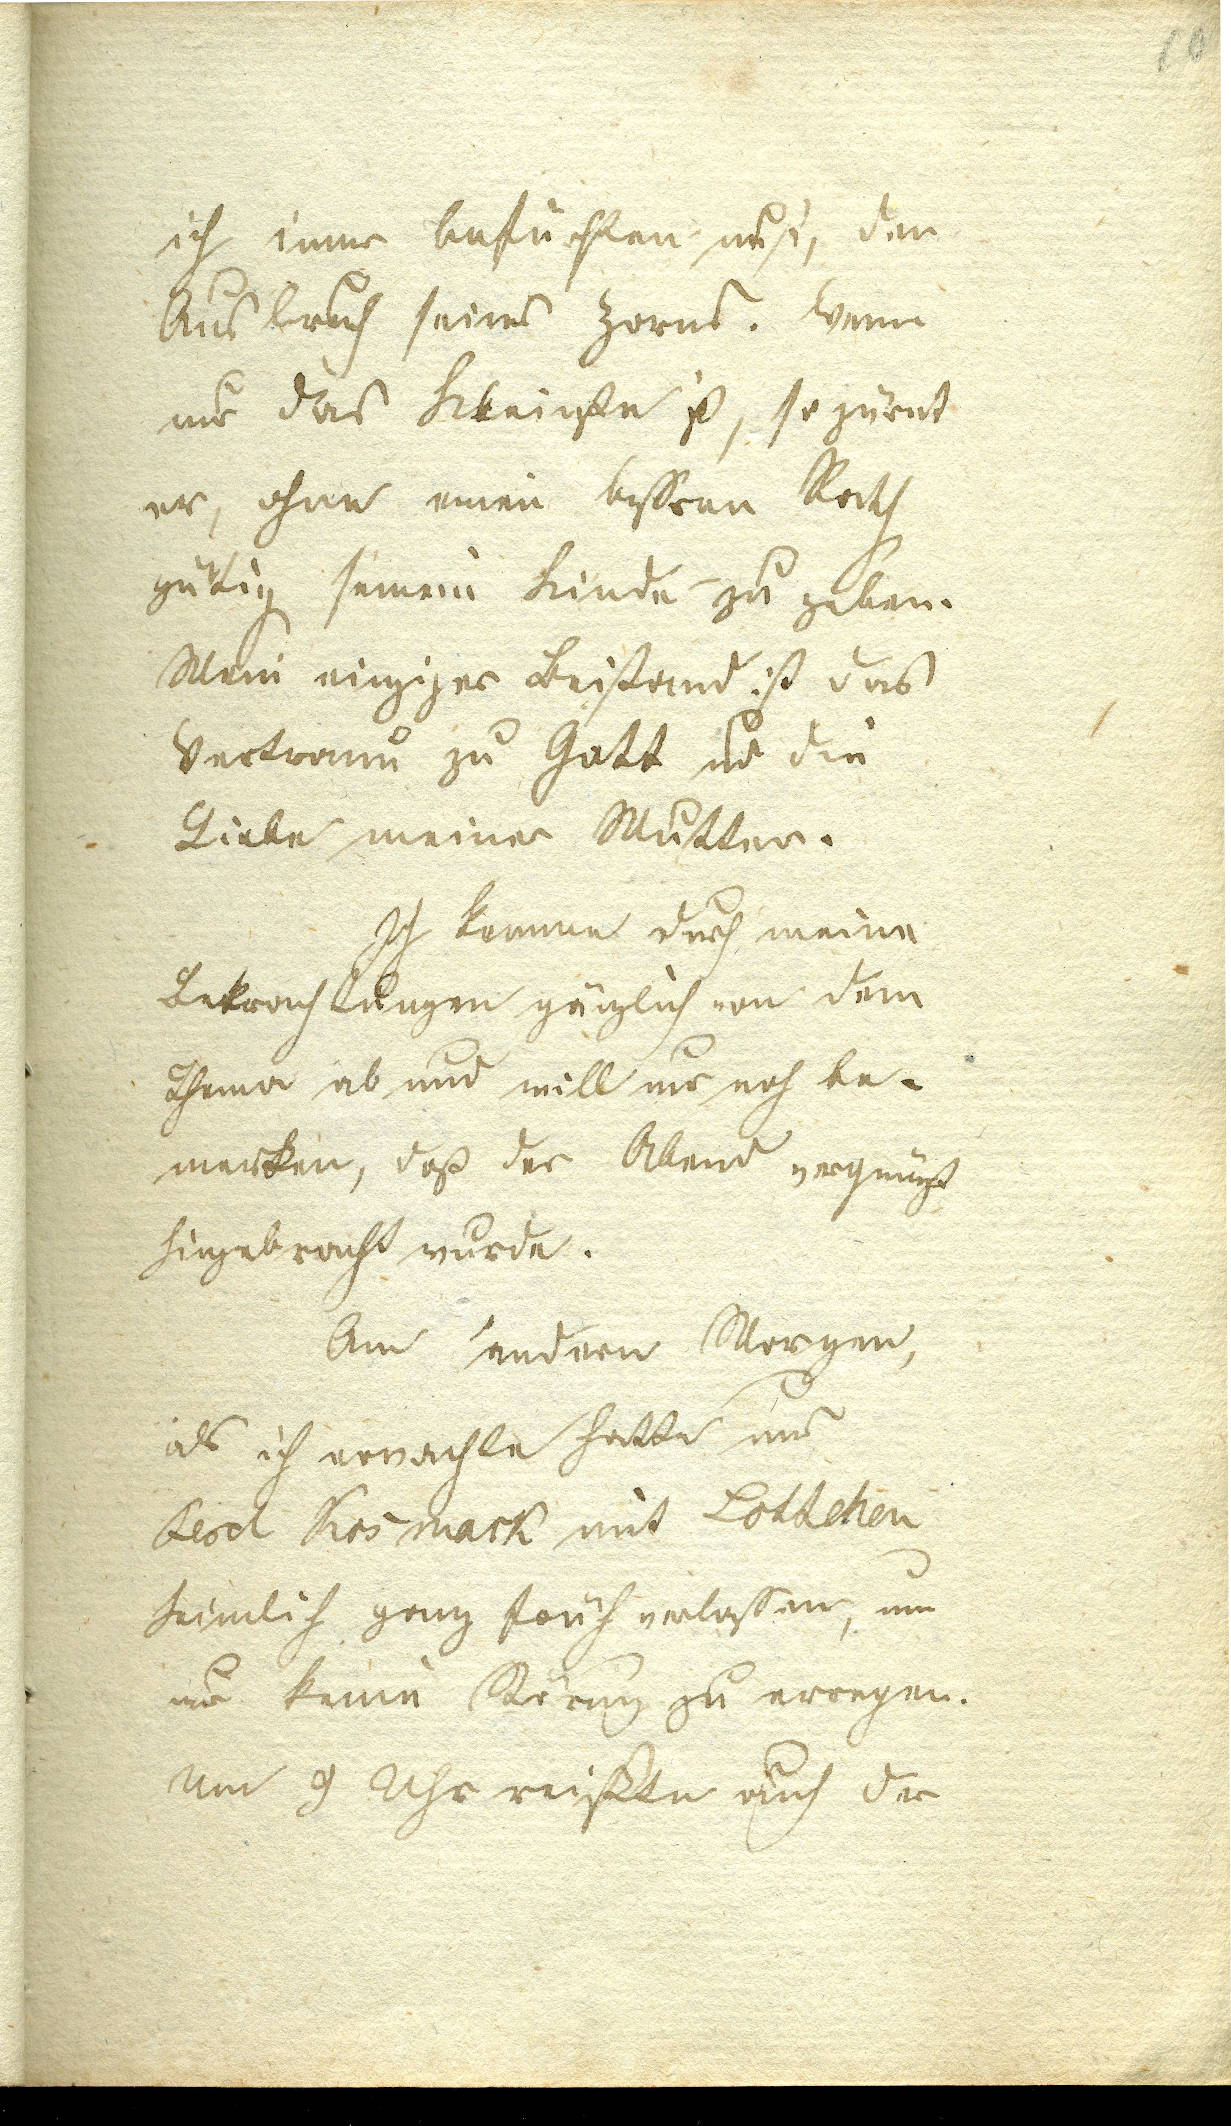 10
ich immer befürchten muß, den
Ausbruch seines Zorns. Wenn
nur das Kleinste ist, so zürnt
er, ohne einen bessren Rath
gütig seinem Kinde zu geben.
Mein einziger Beistand ist das
Vertraun zu Gott und die
Liebe meiner Mutter.
Ich komme durch meine
Betrachtungen gänzlich von dem
Thema ab und will nur noch be-
merken, daß der Abend vergnügt
hingebracht wurde.
Am andern Morgen,
als ich erwachte hatte uns
Kosmack mit Lottchen
heimlich ganz früh verlassen, um
nur keine Störung zu erregen.
Um 9 Uhr reißte auch der